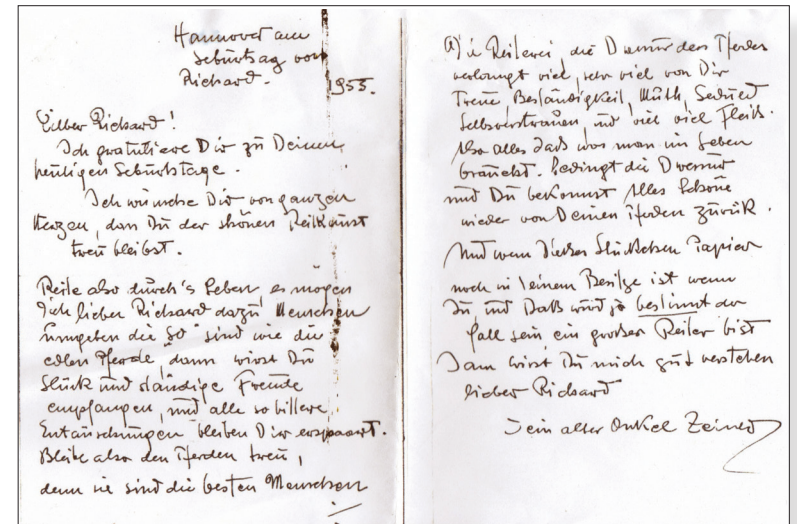 Hannover am
Geburtstag von
Richard.
1955.
Lieber Richard!
Ich gratuliere Dir zu Deinem
heutigen Geburtstage.
Ich wünsche Dir von ganzen
Herzen, dan Du der schönen Reitkunst
treu bleibst.
Reite also durch's Leben, es mögen
Dich lieber Richard dazu Menschen
umgeben die "so" sind wie die
edlen Pferde, dann wirst Du
Glück und ständige Freude
empfangen, und alle so bittere
Entäuschungen bleiben Dir erspaart.
Bleibe also den Pferden treu,
denn sie sind die besten Menschen
Die Reiterei die Dressur des Pferdes
verlangt viel, sehr viel von Dir
Treue, Beständigkeit, Muth, Geduld
Selbsvertrauen und viel viel Fleiß.
Also alles daß was man im Leben
braucht. Bedingt die Dressur
und Du bekommst Alles Schöne
wieder von Deinen Pferden zurück.
Und wenn Dieses Stückchen Papier
noch in Deinem Besitze ist wenn
Du, und Daß wird ja bestimmt der
fall sein ein großer Reiter bist
Dann wirst Du mich gut verstehen
lieber Richard
Dein alter Onkel